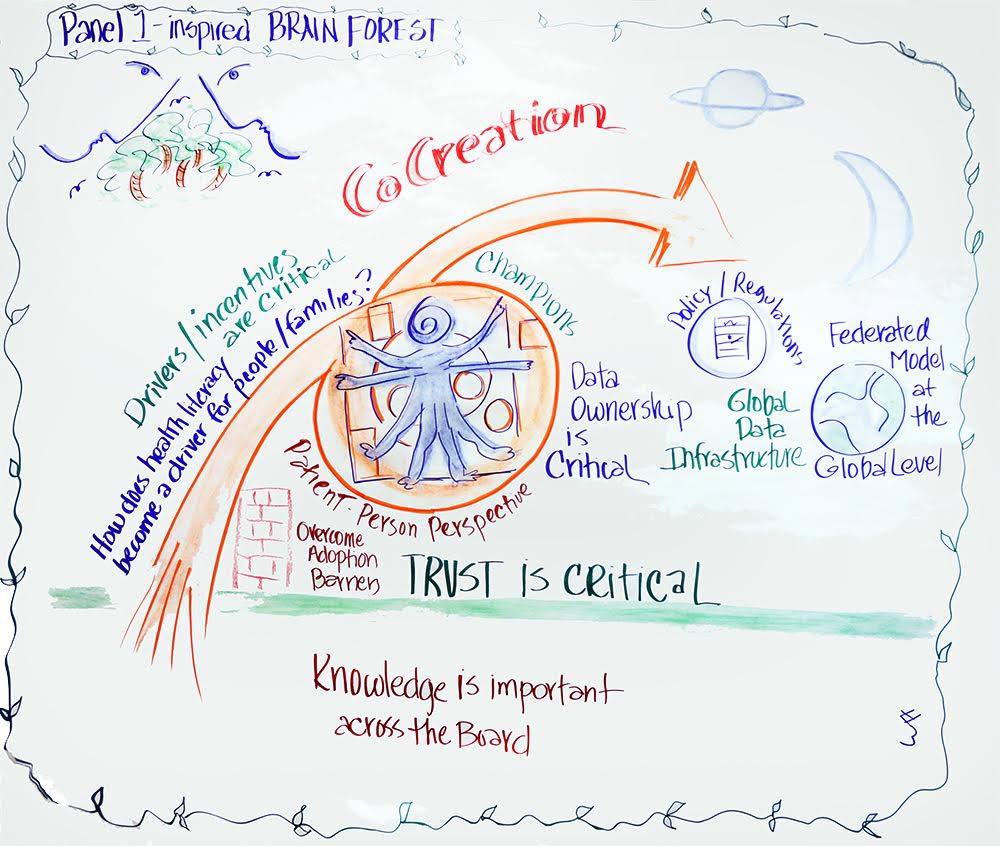 Panel 1-inspired BRAIN FOREST
CoCreation
Drivers/incentives
are critical
How does health literacy
become a driver for people/families?
Champions
Policy/Regulations
Federated
Model
at
the
Global Level
Data
Ownership
is
Critical
Global
Data
Infrastructure
Patient-Person Perspective
Overcome
Adoption
Barriers
TRUST is CRITICAL
Knowledge is important
across the Board